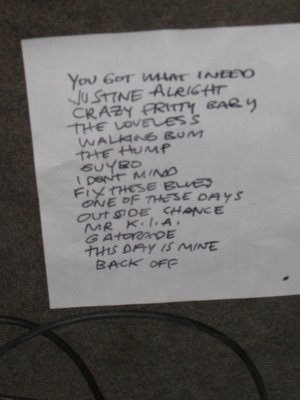 YOU GOT WHAT I NEED
JUSTINE ALRIGHT
CRAZY PRITTY BABY
THE LOVELESS
WALKING BUM
THE HUMP
GUYBO
I DONT MIND
FIX THESE BLUES
ONE OF THESE DAYS
OUTSIDE CHANCE
MR K.I.A.
GATORADE
THIS DAY IS MINE
BACK OFF